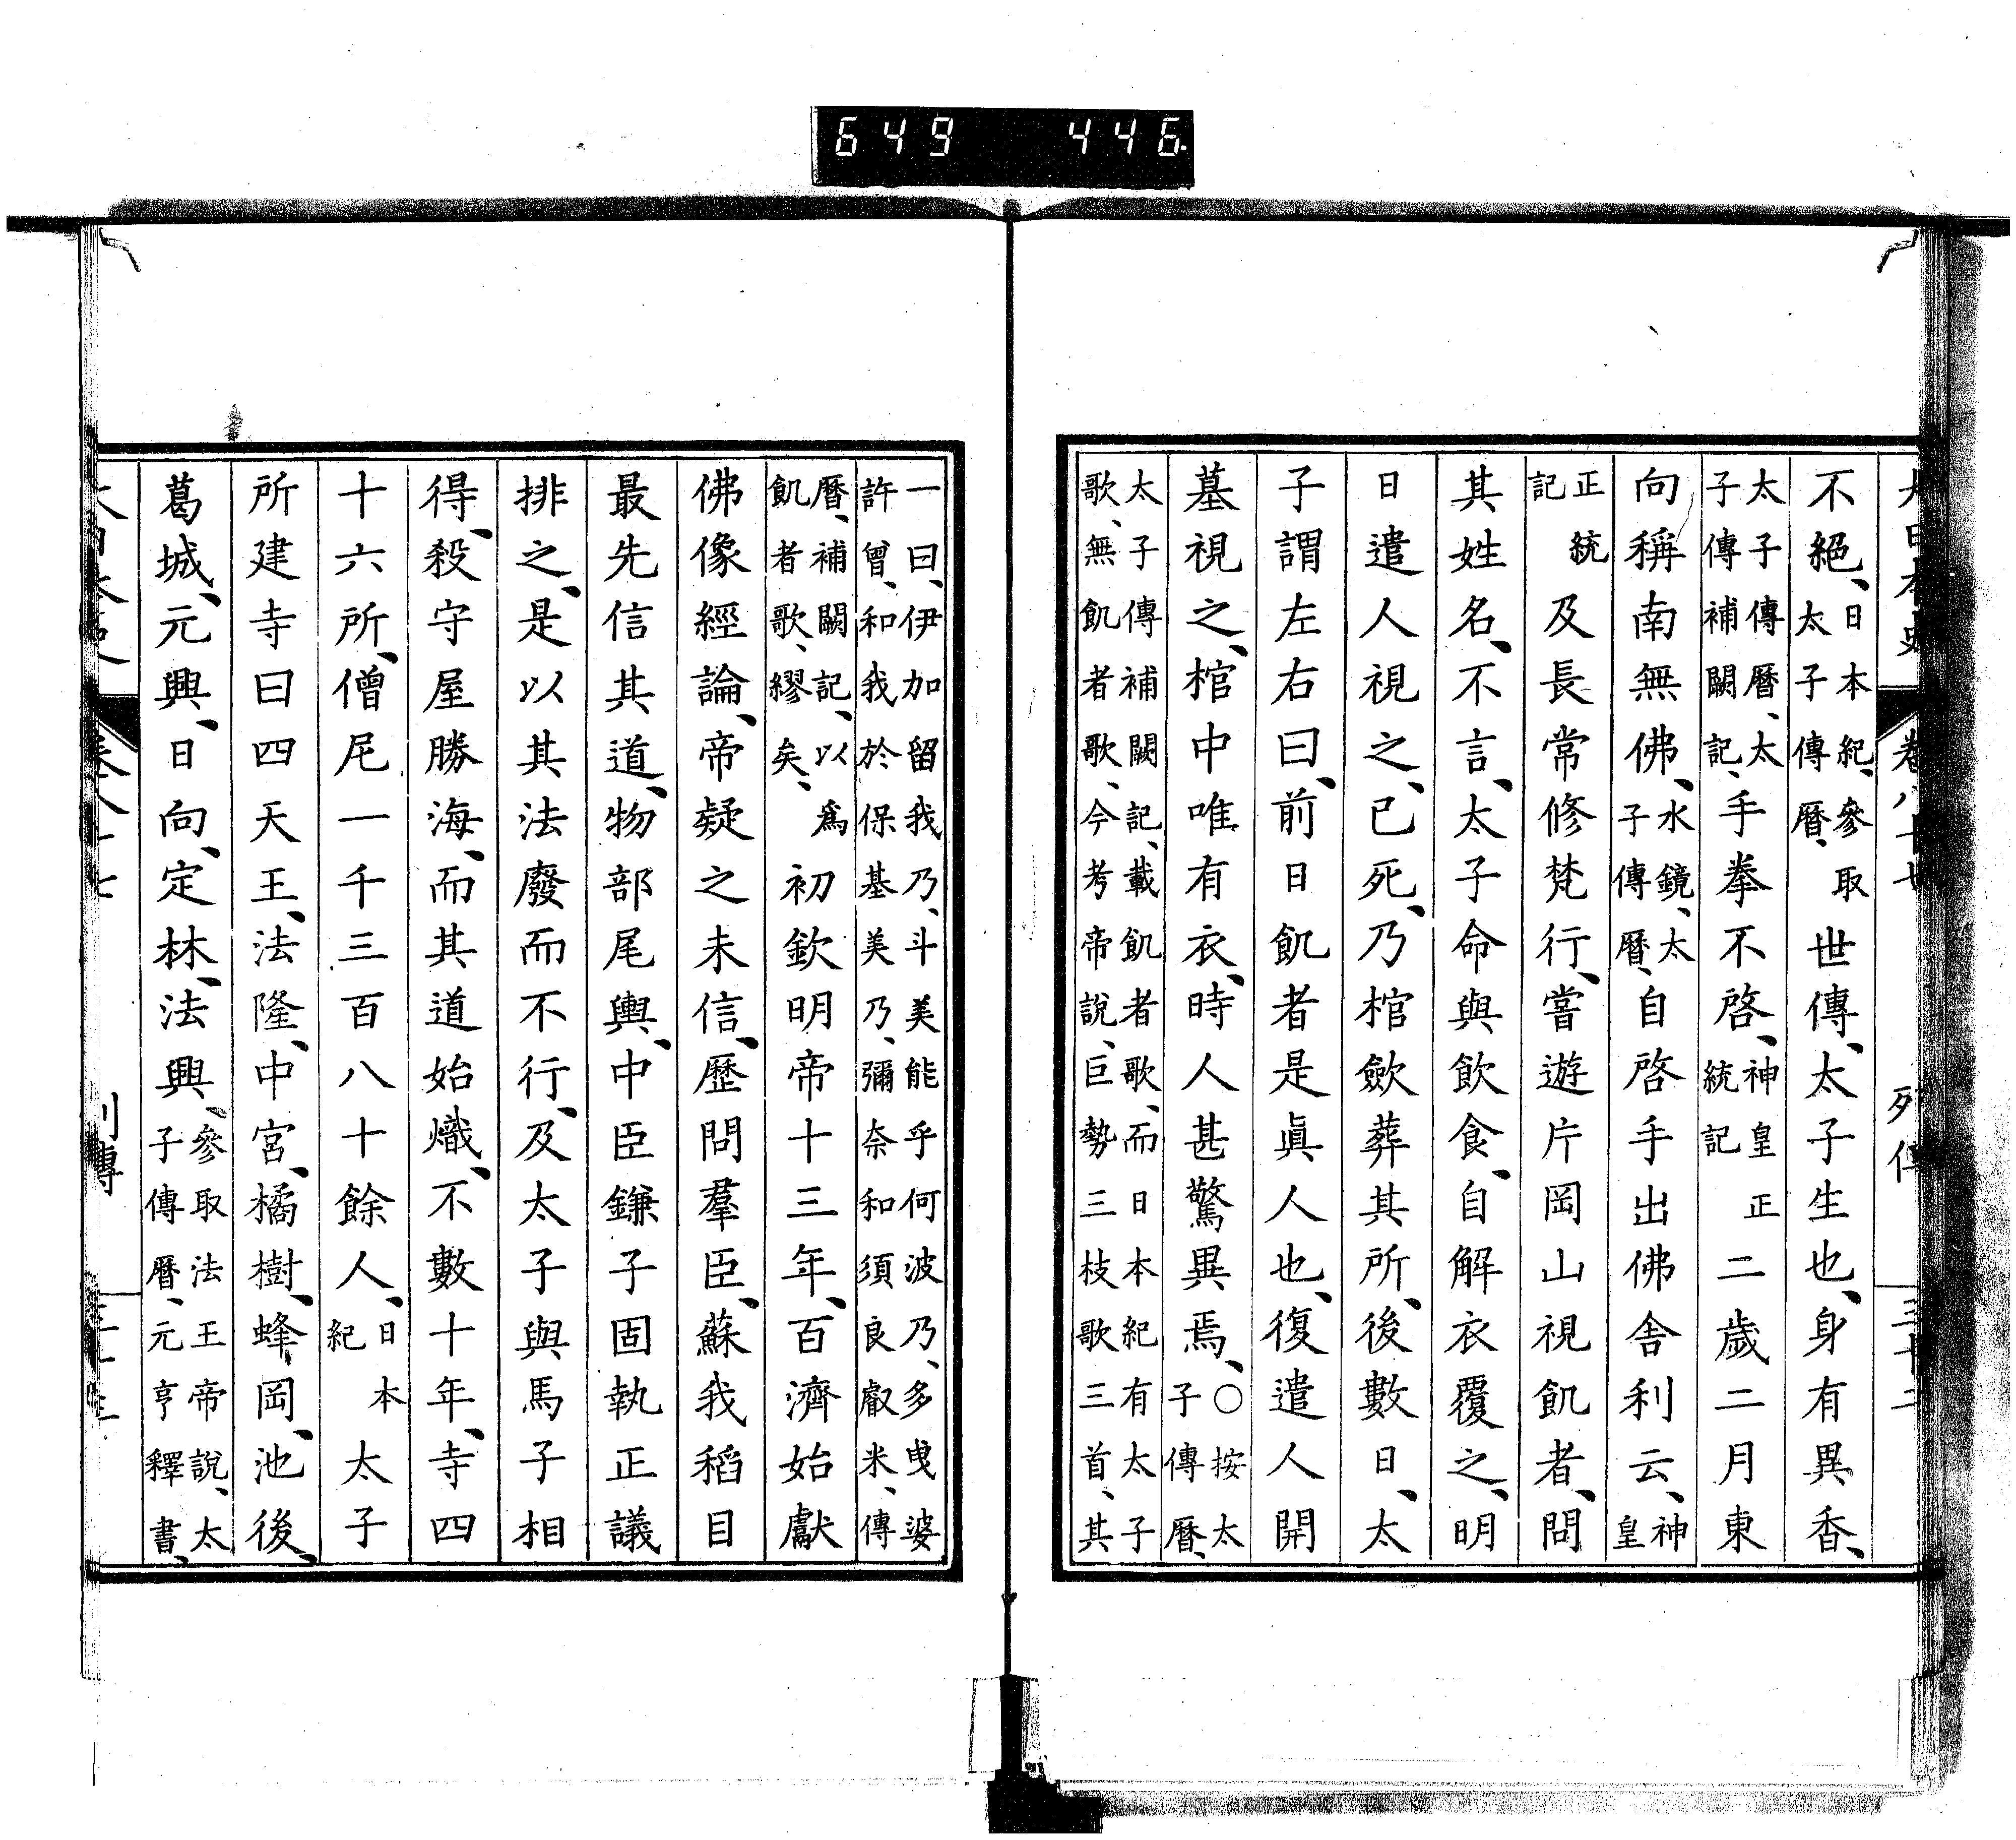 649 446
不絕、日本紀、參取太子傳曆、世傳、太子生也、身有異香、
太子傳曆、太子傳補闕記、手拳不啓、神皇正統記二歲二月東
向稱南無佛、水鏡、太子傳曆、自啓手出佛舍利云、神皇
正統記及長常修梵行、嘗遊片岡山視飢者、問
其姓名、不言、太子命與飲食、自解衣覆之、明
日遣人視之、已死、乃棺斂葬其所、後數日、太
子謂左右曰、前日飢者是眞人也、復遣人開
墓視之、棺中唯有衣、時人甚驚異焉、○按太子傳曆、
太子傳補闕記、載飢者歌、而日本紀有太子歌、無飢者歌、今考帝說、巨勢三枝歌三首、其
一曰、伊加留我乃、斗美能乎何波乃、多曳婆許曾、和我於保基美乃、彌奈和須良叡米、傳
曆、補闕記、以爲飢者歌、繆矣、初欽明帝十三年、百濟始獻
佛像經論、帝疑之未信、歷問羣臣、蘇我稻目
最先信其道、物部尾輿、中臣鎌子固執正議
排之、是以其法廢而不行、及太子與馬子相
得、殺守屋勝海、而其道始熾、不數十年、寺四
十六所、僧尼一千三百八十餘人、日本紀太子
所建寺曰四天王、法隆、中宮、橘樹、蜂岡、池後、
葛城、元興、日向、定林、法興、參取法王帝說、太子傳曆、元亨釋書、